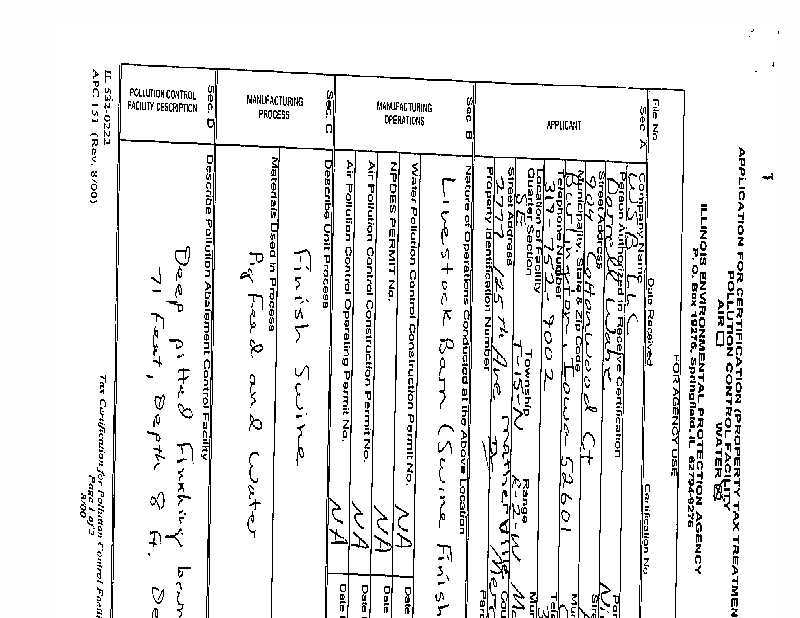 APPLICATION FOR CERTIFICATION (PROPERTY TAX TREATMEN
POLLUTION CONTROL FACILITY
AIR ☐ WATER ☒
ILLINOIS ENVIRONMENTAL PROTECTION AGENCY
P. O. Box 19276, Springfield, IL 62794-9276
FOR AGENCY USE
File No. Date Received Certification No.
Sec. A
APPLICANT
Company Name
WSB LLC
Person Authorized to Receive Certification
Darrell Wahe
Street Address
904 Cottonwood Ct
Municipality, State & Zip Code
Burlington, Iowa 52601
Telephone Number
319-752-9002
Location of Facility
Quarter Section Township Range
SE T-15-N R-2-W
Street Address
2777 125th Ave, Matherville
Property Identification Number
Sec. B
MANUFACTURING
OPERATIONS
Nature of Operations Conducted at the Above Location
Livestock Barn (Swine Finish
Water Pollution Control Construction Permit No. NA Date
NPDES PERMIT No. NA Date
Air Pollution Control Construction Permit No. NA Date
Air Pollution Control Operating Permit No. NA Date
Sec. C
MANUFACTURING
PROCESS
Describe Unit Process
Finish Swine
Materials Used in Process
Pig Feed and Water
Sec. D
POLLUTION CONTROL
FACILITY DESCRIPTION
Describe Pollution Abatement Control Facility
Deep pitted Finishing barn
71 feet, Depth 8 ft. De
IL 532-0222
APC 151 (Rev. 8/00)
Tax Certification for Pollution Control Facili
Page 1 of 3
8/00